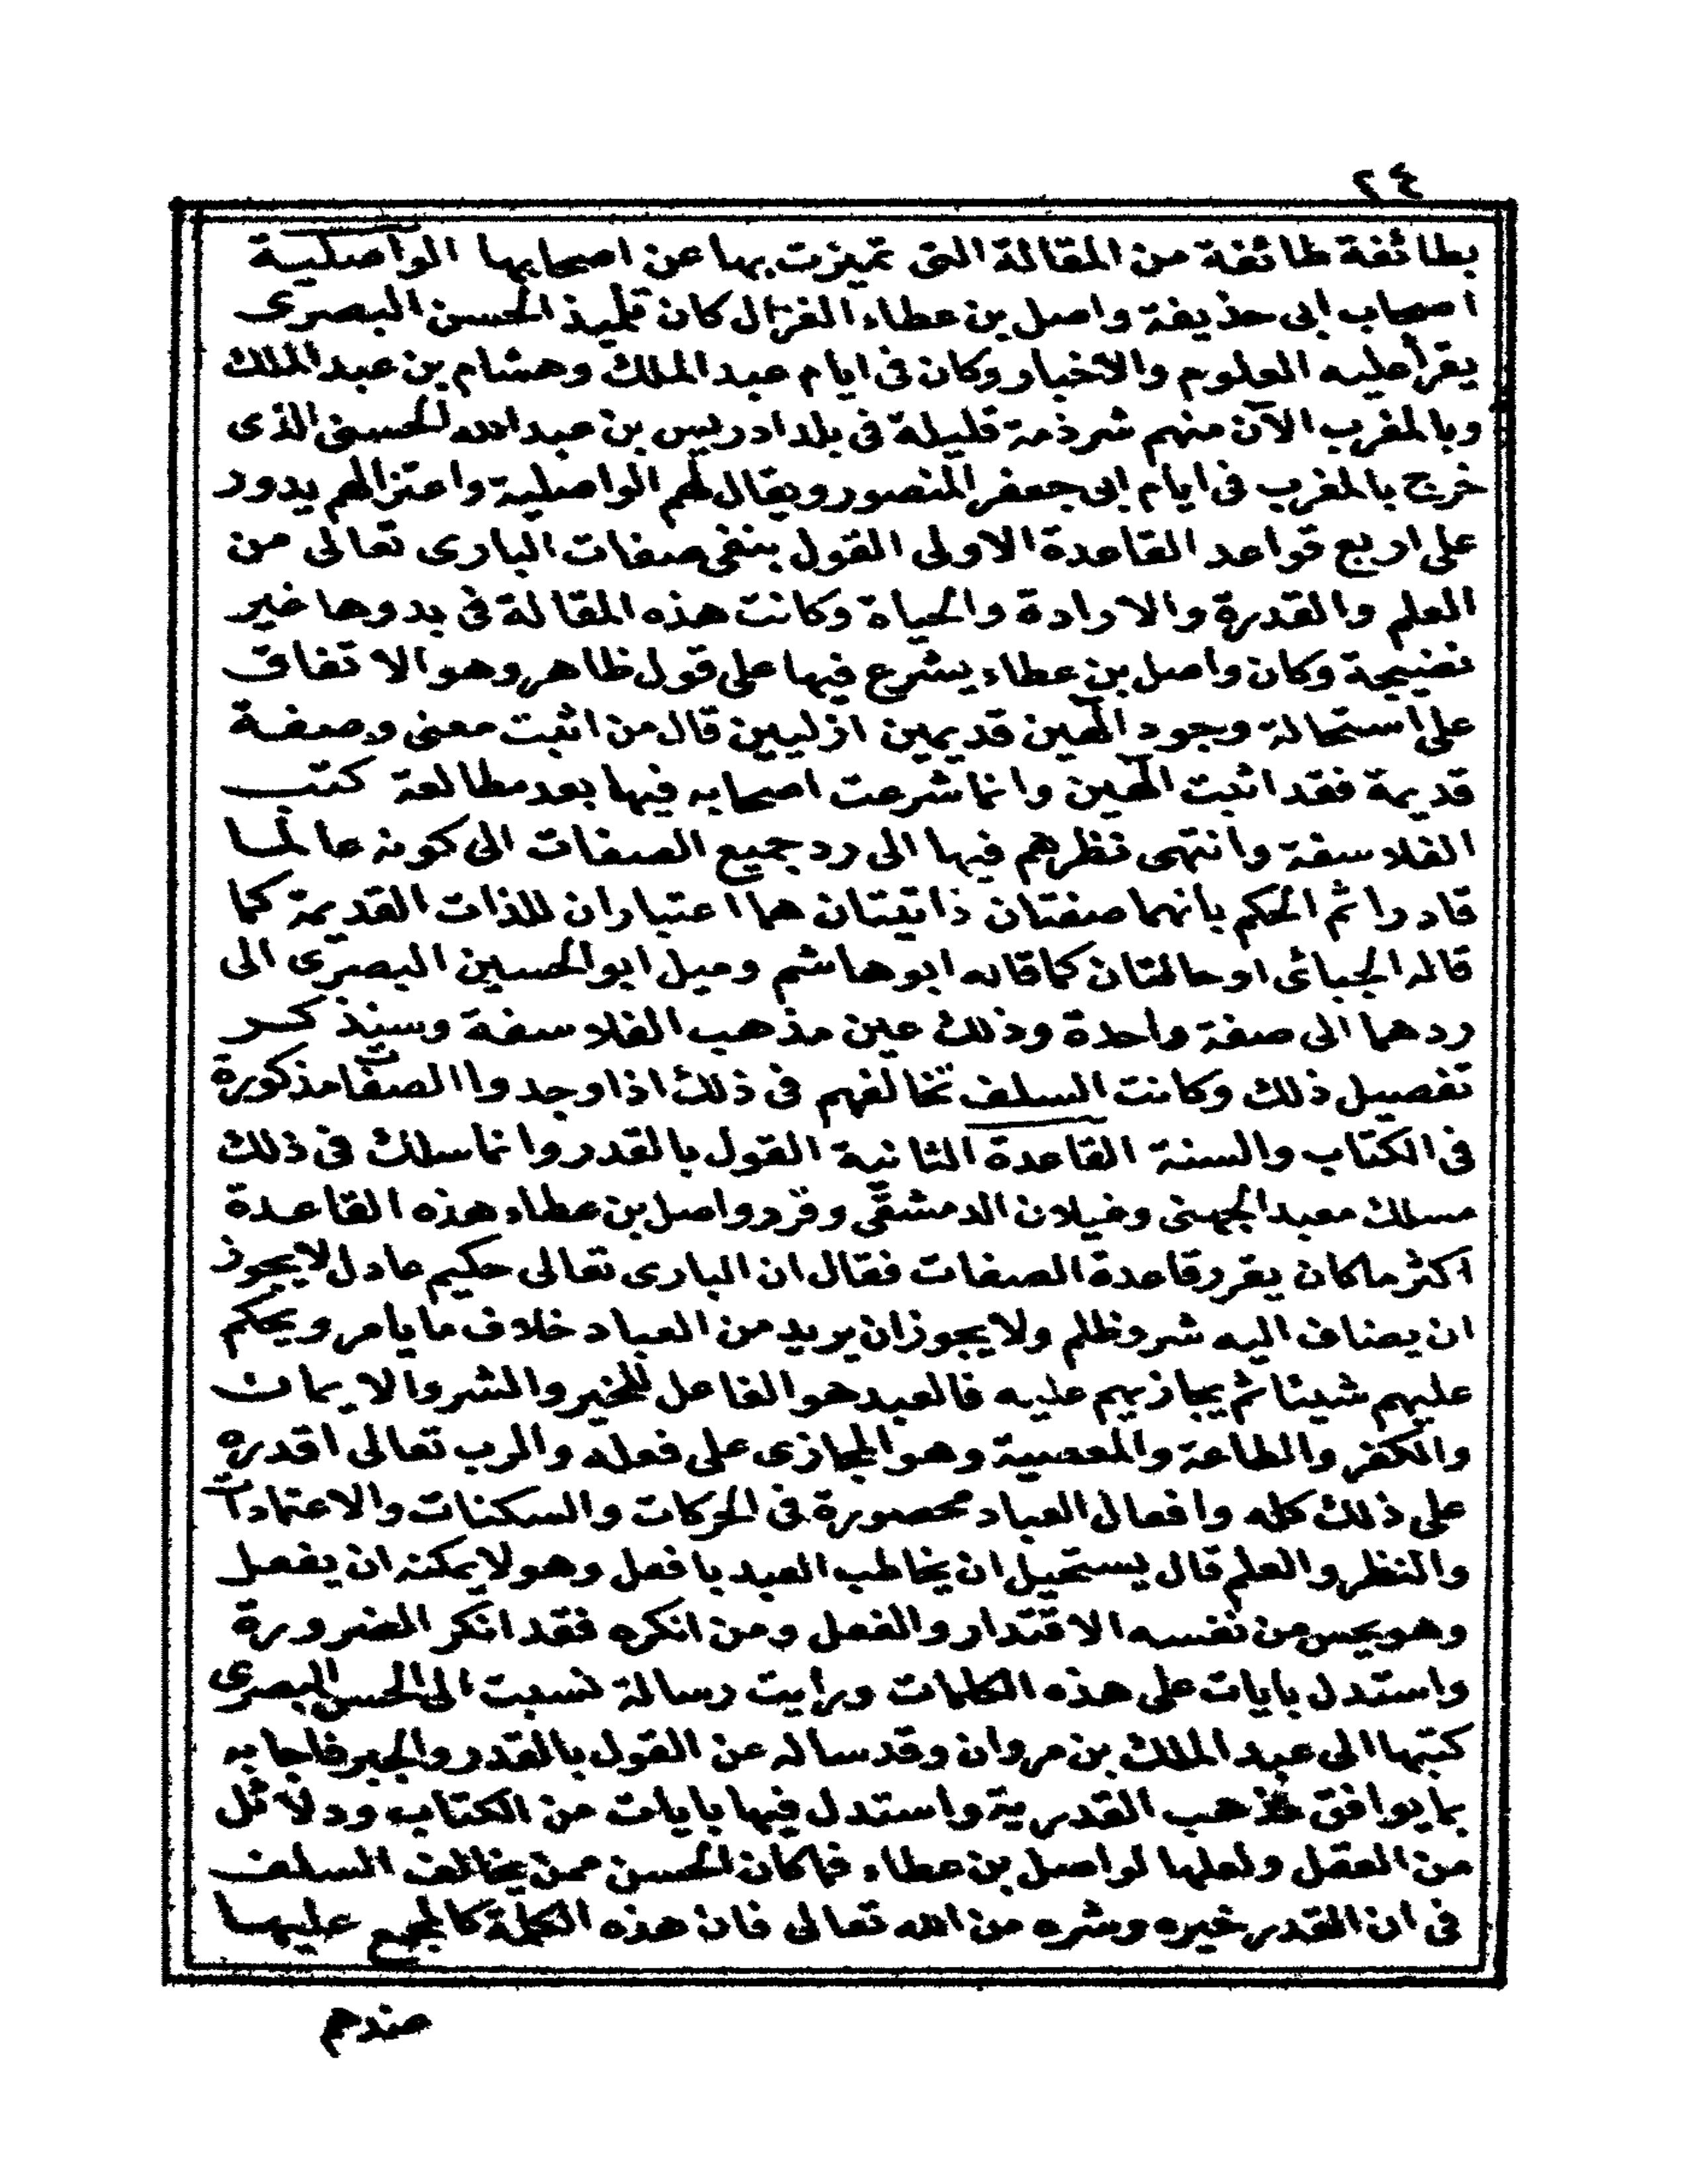 ٢٤
بطائفة طائفة من المقالة التى تميزت بها عن اصحابها الواصلية
اصحاب ابى حذيفة واصل بن عطاء الغزال كان تلميذ الحسن البصرى
يقرأ عليه العلوم والاخبار وكان فى ايام عبد الملك وهشام بن عبد الملك
وبالمغرب الآن منهم شرذمة قليلة فى بلد ادريس بن عبد الله الحسنى الذى
خرج بالمغرب فى ايام ابى جعفر المنصور ويقال لهم الواصلية واعتزالهم يدور
على اربع قواعد القاعدة الاولى القول بنفى صفات البارى تعالى من
العلم والقدرة والارادة والحياة وكانت هذه المقالة فى بدوها غير
نضيجة وكان واصل بن عطاء يشرع فيها على قول ظاهر وهو الاتفاق
على استحالة وجود الهين قديمين ازليين قال من اثبت معنى وصفة
قديمة فقد اثبت الهين وانما شرعت اصحابه فيها بعد مطالعة كتب
الفلاسفة وانتهى نظرهم فيها الى رد جميع الصفات الى كونه عالما
قادرا ثم الحكم بانهما صفتان ذاتيتان هما اعتباران للذات القديمة كما
قاله الجبائى او حالتان كما قاله ابو هاشم وميل ابو الحسين البصرى الى
ردهما الى صفة واحدة وذلك عين مذهب الفلاسفة وسنذكر
تفصيل ذلك وكانت السلف تخالفهم فى ذلك اذا وجدوا الصفات مذكورة
فى الكتاب والسنة القاعدة الثانية القول بالقدر وانما سلك فى ذلك
مسلك معبد الجهنى وغيلان الدمشقى وقرر واصل بن عطاء هذه القاعدة
اكثر ما كان يقرر قاعدة الصفات فقال ان البارى تعالى حكيم عادل لا يجوز
ان يضاف اليه شر وظلم ولا يجوز ان يريد من العباد خلاف ما يامر ويحكم
عليهم شيئا ثم يجازيهم عليه فالعبد هو الفاعل للخير والشر والايمان
والكفر والطاعة والمعصية وهو المجازى على فعله والرب تعالى اقدره
على ذلك كله وافعال العباد محصورة فى الحركات والسكنات والاعتمادات
والنظر والعلم قال يستحيل ان يخاطب العبد بافعل وهو لا يمكنه ان يفعل
وهو يحس من نفسه الاقتدار والفعل ومن انكره فقد انكر الضرورة
واستدل بايات على هذه الكلمات ورأيت رسالة نسبت الى الحسن البصرى
كتبها الى عبد الملك بن مروان وقد ساله عن القول بالقدر والجبر فاجابه
بما يوافق مذهب القدرية واستدل فيها بايات من الكتاب ودلائل
من العقل ولعلها لواصل بن عطاء فما كان الحسن ممن يخالف السلف
فى ان القدر خيره وشره من الله تعالى فان هذه الكلمة كالمجمع عليها
عندهم